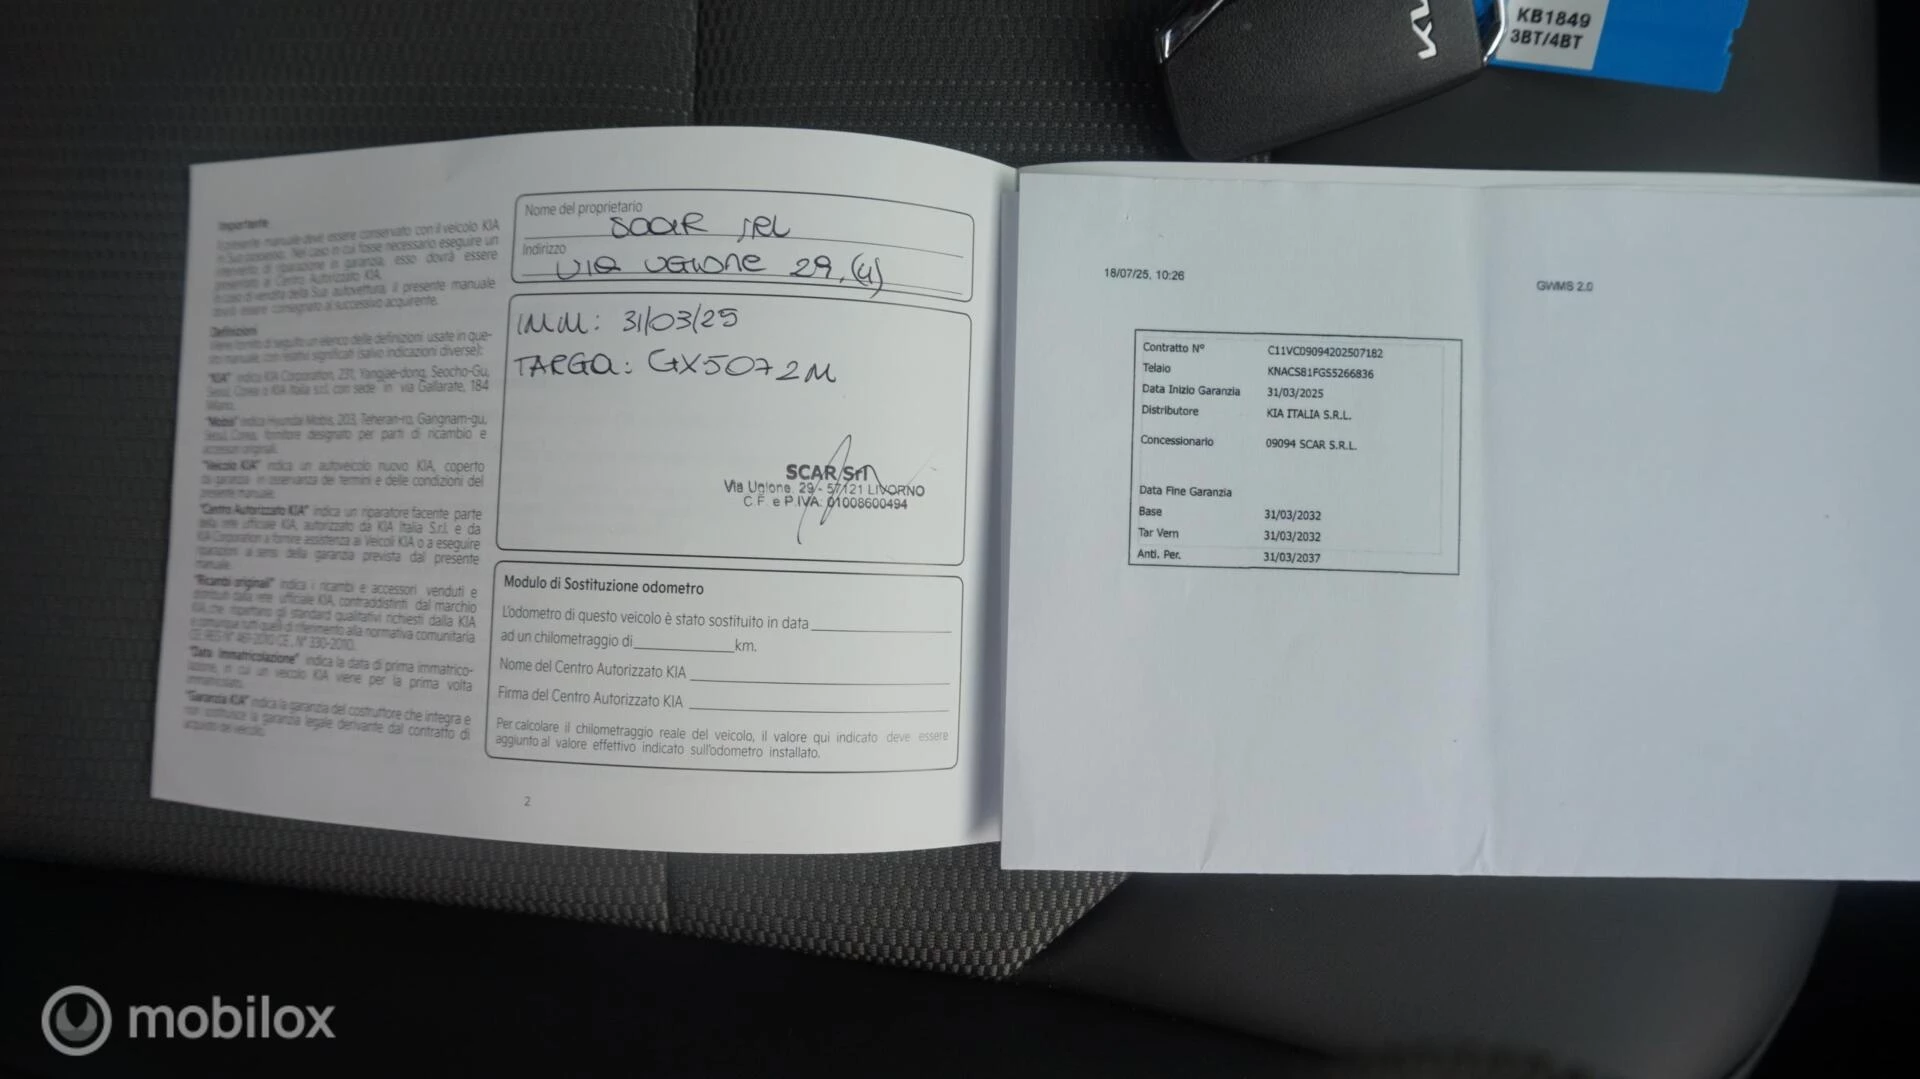 KB1849
3BT/4BT
Importante
Il presente manuale deve essere conservato con il veicolo KIA
in Suo possesso. Nel caso in cui fosse necessario eseguire un
intervento di riparazione in garanzia, esso dovrà essere
presentato al Centro Autorizzato KIA.
In caso di vendita della Sua autovettura, il presente manuale
dovrà essere consegnato al successivo acquirente.
Definizioni
Viene fornito di seguito un elenco delle definizioni usate in que-
sto manuale, con relativi significati (salvo indicazioni diverse):
"KIA" indica KIA Corporation, 231, Yangjae-dong, Seocho-Gu,
Seoul, Corea o KIA Italia s.r.l. con sede in via Gallarate, 184
Milano.
"Mobis" indica Hyundai Mobis, 203, Teheran-ro, Gangnam-gu,
Seoul, Corea, fornitore designato per parti di ricambio e
accessori originali.
"Veicolo KIA" indica un autoveicolo nuovo KIA, coperto
da garanzia in osservanza dei termini e delle condizioni del
presente manuale.
"Centro Autorizzato KIA" indica un riparatore facente parte
della rete ufficiale KIA, autorizzato da KIA Italia S.r.l. e da
KIA Corporation a fornire assistenza ai Veicoli KIA o a eseguire
riparazioni ai sensi della garanzia prevista dal presente
manuale.
"Ricambi originali" indica i ricambi e accessori venduti e
distribuiti dalla rete ufficiale KIA, contraddistinti dal marchio
KIA che rispettano gli standard qualitativi richiesti dalla KIA
e comunque tutti quelli di riferimento alla normativa comunitaria
CE. REG N° 461-2010 CE . N° 330-2010.
"Data Immatricolazione" indica la data di prima immatrico-
lazione, in cui un veicolo KIA viene per la prima volta
immatricolato.
"Garanzia KIA" indica la garanzia del costruttore che integra e
non sostituisce la garanzia legale derivante dal contratto di
acquisto del veicolo.
Nome del proprietario
SCAR SRL
Indirizzo
VIA UGIONE 29, (LI)
IMM: 31/03/25
TARGA: GX5072M
SCAR Srl
Via Ugione, 29 - 57121 LIVORNO
C.F. e P.IVA: 01008600494
Modulo di Sostituzione odometro
L'odometro di questo veicolo è stato sostituito in data
ad un chilometraggio di km.
Nome del Centro Autorizzato KIA
Firma del Centro Autorizzato KIA
Per calcolare il chilometraggio reale del veicolo, il valore qui indicato deve essere
aggiunto al valore effettivo indicato sull'odometro installato.
2
18/07/25, 10:26
GWMS 2.0
Contratto N° C11VC09094202507182
Telaio KNACS81FGS5266836
Data Inizio Garanzia 31/03/2025
Distributore KIA ITALIA S.R.L.
Concessionario 09094 SCAR S.R.L.
Data Fine Garanzia
Base 31/03/2032
Tar Vern 31/03/2032
Anti. Per. 31/03/2037
mobilox